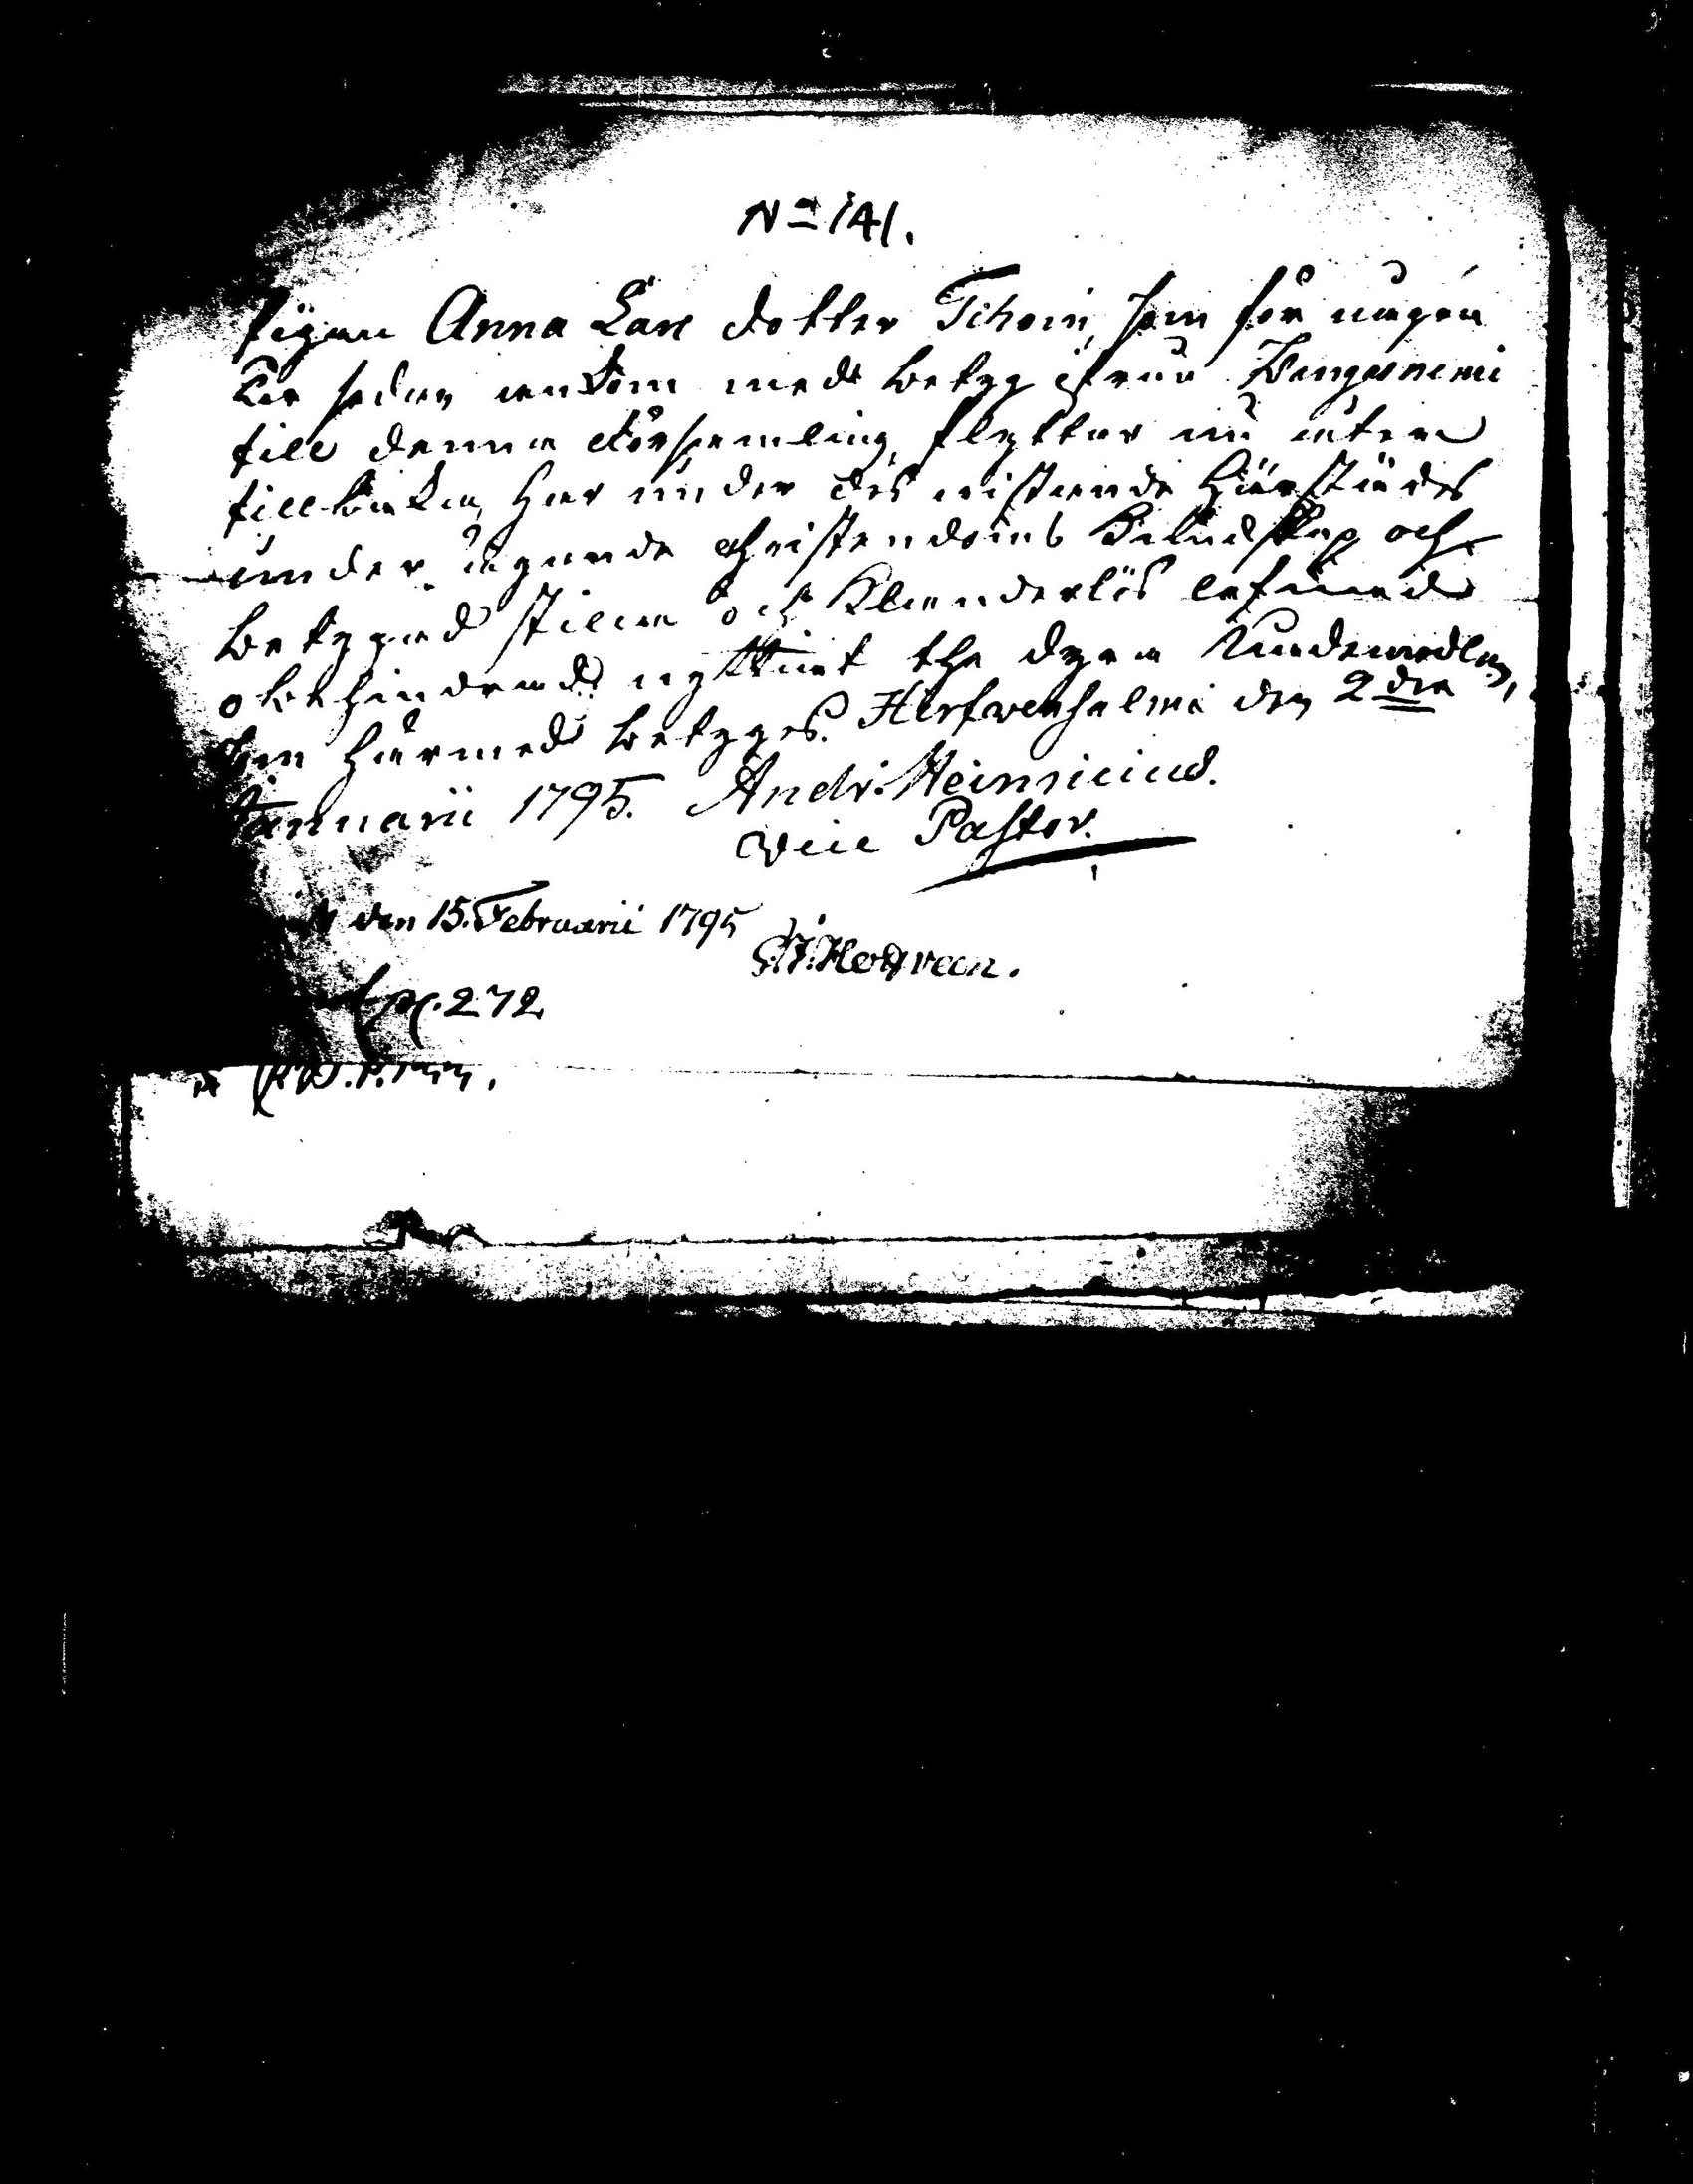 No 141.
Pigan Anna Lars dotter Tihoin, som för någon
tid sedan ankom med betyg ifrån Kangasniemi
till denna Församling, flyttar nu åter
tillbaka, har under des vistande härstädes
under ägande christendoms Kundskap och
betygad stilla och Klanderlös lefnad
obehindrad nyttiat the dyra Nådemedlen,
som härmed betyges. Hirfvensalmi den 2 dra
Januarii 1795. Andr. Heinricius.
Vice Pastor.
den 15. Februarii 1795
Hogreen.
pag. 272